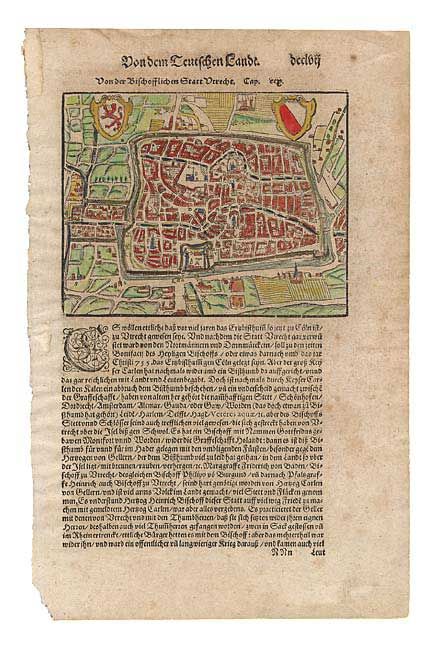 Von dem Teutschen Landt. dcclvij
Von der Bischofflichen Statt Vtrecht. Cap.
ES wöllen ettliche daß vor viel jaren das Ertzbisthumb so jetz zu Cöln ist/
zu Vtrecht gewesen seye. Vnd nachdem die Statt Vtrecht gar verwü
stet ward von den Nortmännern vnd Dennmärckern/ soll zu den zeiten
Bonifacij des Heyligen Bischoffs/ oder etwas darnach vmb das jar
Christi 755 Das Ertzbisthumb gen Cöln gelegt seyn. Aber der groß Key
ser Carlen hat nachmals wider umb ein Bisthumb da auffgericht/ vnnd
das gar reichlichen mit Landt vnd Leuten begabt. Doch ist nachmals durch Keyser Car
len den Kalen ein abbruch dem Bisthumb beschehen/ ja ein vnderscheid gemacht zwischen
der Graffeschafft/ haben von altem her gehört die nauhafftigen Stätt/ Schönhofen/
Dordrecht/ Amsterdam/ Alcmar/ Gauda/ oder Gow/ Worden/ (das doch etwan zu Bis
thumb hat gehört) Leide/ Harlem/ Delfft/ Hagt/ des Bischoffs
Stett vnnd Schlösser seind auch trefflichen viel gewesen/ die sich gestreckt haben von V-
trecht
bawen Montfort vnd Worden/ wider die Graffeschafft Holandt: dann es ist diß Bis-
thumb für vnnd für im Hader gelegen mit den vmbligenden Fürsten/ besonder gegen dem
Hertzogen von Gellern/ der dem Bisthumb viel zu leid hat gethan/ in dem Landt so vber
der Jsel ligt/ mit brennen/ rauben/ verhergen/ Marggraffe Friderich von Baden/ Bi-
schoff zu Vtrecht/ dergleichen Bischoff Philips võ Burgund/ vñ darnach Pfaltzgraf-
fe Heinrich auch Bischoff zu Vtrecht/ seind hart genötigt worden von Hertzog Carlen
von Gellern/ vnd ist viel arms Volck im Landt gemacht/ viel Stett vnd Flecken genom
men. Es vnderstund Hertzog Heinrich Bischoff dieser Statt auff viel weg Fried zu ma-
chen mit gemeldtem Hertzog Carlen/ war aber alles vergebens. Es practicieret der Geller
mit denen von Vtrecht vnd den Thumbherren/ daß sie sich setzten wider ihren eigenen
Herren/ deßhalben auch viel Thumbherren gefangen worden/ zwen in Seck gestossen vñ
im Rhein ertrenckt/ ettliche Bürger hetten es mit dem Bischoff: aber das mehrtheil war
wider ihn/ vnd ward ein offentlicher vñ langwieriger Krieg darauß/ vnd kamen auch viel
N Nn Leut